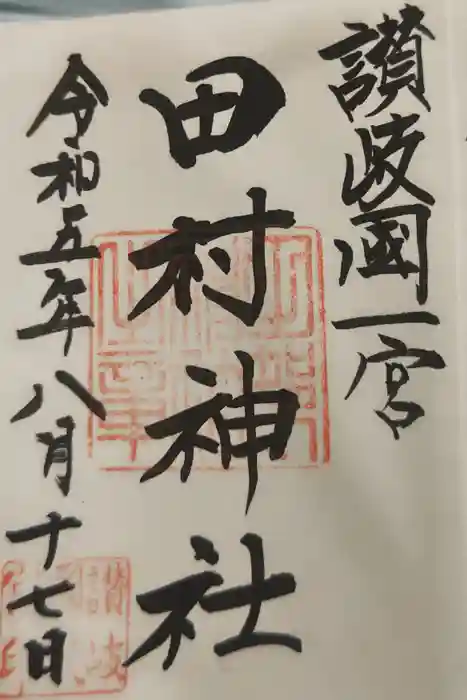 讃岐國一宮
田村神社
令和五年八月十七日
讃岐